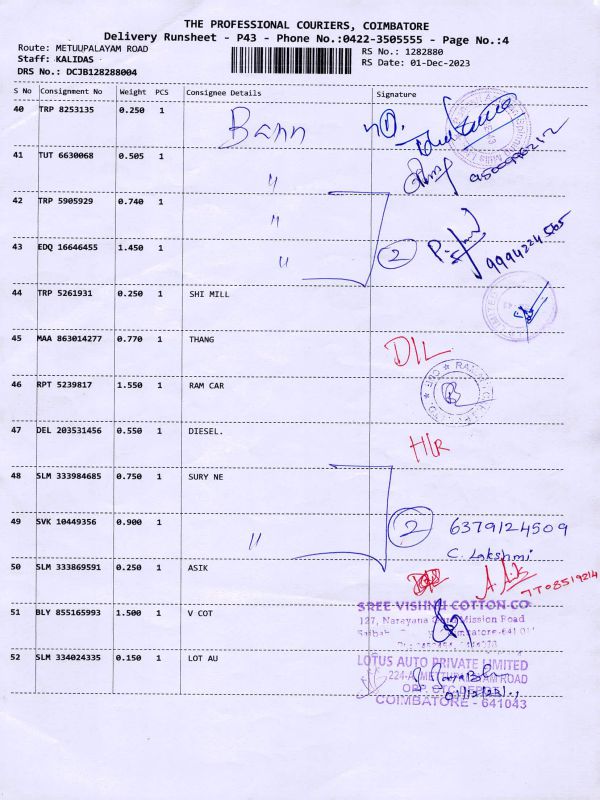 THE PROFESSIONAL COURIERS, COIMBATORE
Delivery Runsheet - P43 - Phone No.:0422-3505555 - Page No.:4
Route: METUUPALAYAM ROAD
Staff: KALIDAS
DRS No.: DCJB128288004
RS No.: 1282880
RS Date: 01-Dec-2023
S No Consignment No Weight PCS Consignee Details Signature
40 TRP 8253135 0.250 1
41 TUT 6630068 0.505 1 "
42 TRP 5905929 0.740 1 "
43 EDQ 16646455 1.450 1 " 2 9994224565
44 TRP 5261931 0.250 1 SHI MILL
45 MAA 863014277 0.770 1 THANG D/L
46 RPT 5239817 1.550 1 RAM CAR
47 DEL 203531456 0.550 1 DIESEL. H/R
48 SLM 333984685 0.750 1 SURY NE
49 SVK 10449356 0.900 1 " 2 6379124509
C. Lakshmi
50 SLM 333869591 0.250 1 ASIK
51 BLY 855165993 1.500 1 V COT
SREE VISHNU COTTON CO
127, Narayana Mission Road
52 SLM 334024335 0.150 1 LOT AU
LOTUS AUTO PRIVATE LIMITED
COIMBATORE - 641043